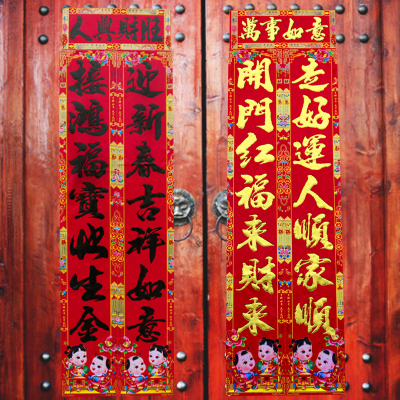 人興財旺
迎新春吉祥如意
接鴻福寶地生金
萬事如意
走好運人順家順
開門红福來財來